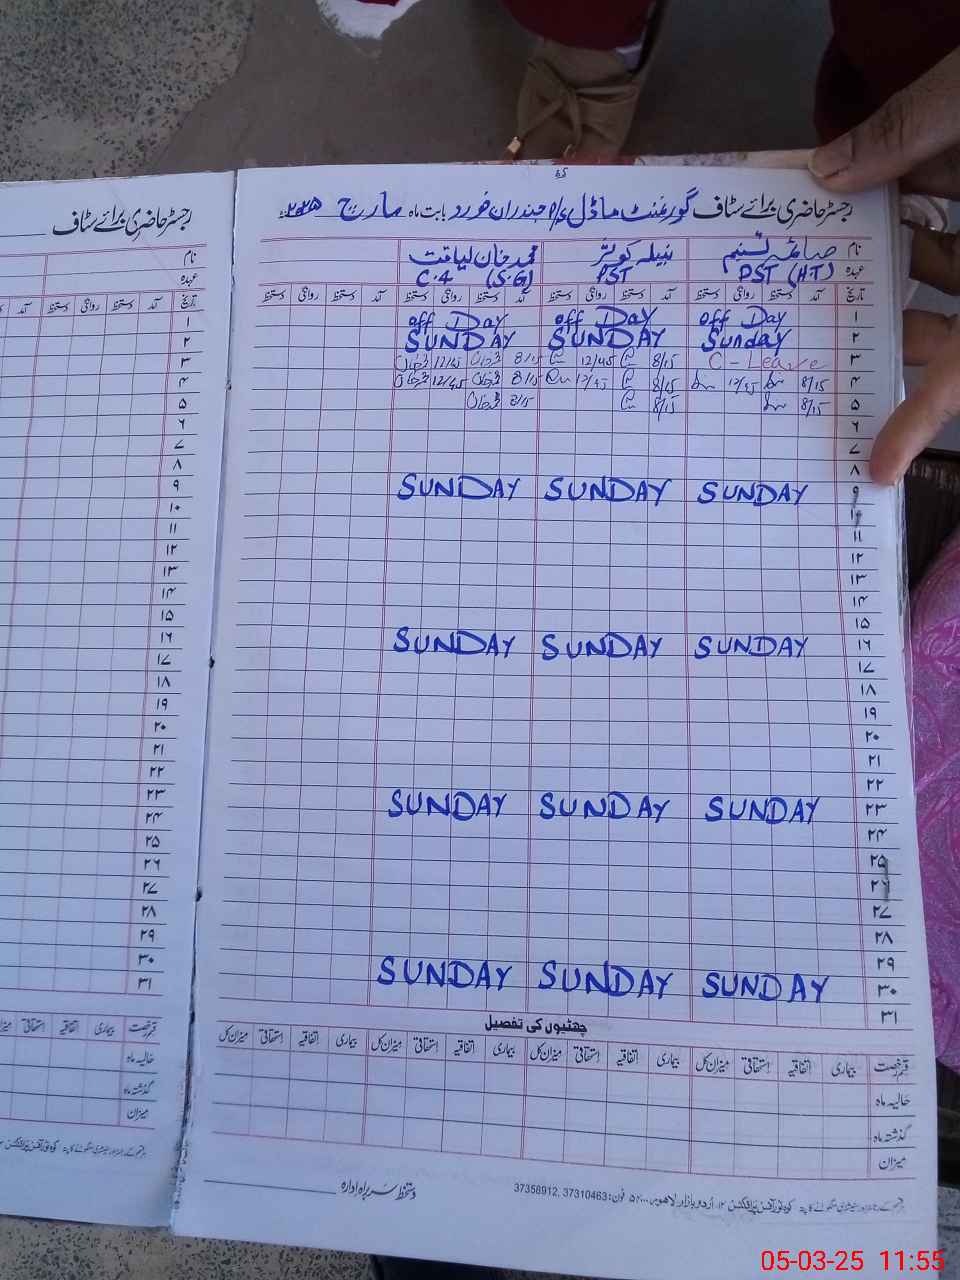 45
رجسٹر حاضری برائے سٹاف گورنمنٹ ماڈل p/s جندران خورد بابت ماہ مارچ ۲۰۲۵ء
نام صائمہ تسنیم نبیلہ کوثر محمد خان لیاقت
عہدہ PST (HT) PST C-4 (S.G)
تاریخ آمد دستخط روانگی دستخط آمد دستخط روانگی دستخط آمد دستخط روانگی دستخط آمد دستخط روانگی دستخط
۱ off Day off Day off Day
۲ Sunday SUNDAY SUNDAY
۳ C - Leave 8/15 12/45 8/15 12/45
۴ 8/15 12/45 8/15 12/45 8/15 12/45
۵ 8/15 8/15 8/15
۶
۷
۸
۹ SUNDAY SUNDAY SUNDAY
۱۰
۱۱
۱۲
۱۳
۱۴
۱۵
۱۶ SUNDAY SUNDAY SUNDAY
۱۷
۱۸
۱۹
۲۰
۲۱
۲۲
۲۳ SUNDAY SUNDAY SUNDAY
۲۴
۲۵
۲۶
۲۷
۲۸
۲۹
۳۰ SUNDAY SUNDAY SUNDAY
۳۱
چھٹیوں کی تفصیل
قسم رخصت بیماری اتفاقیہ استحقاقی میزان کل بیماری اتفاقیہ استحقاقی میزان کل بیماری اتفاقیہ استحقاقی میزان کل بیماری اتفاقیہ استحقاقی میزان کل
حالیہ ماہ
گذشتہ ماہ
میزان
دستخط سربراہ ادارہ
اردو بازار لاہور فون: 37310463, 37358912
رجسٹر حاضری برائے سٹاف
نام
عہدہ
تاریخ آمد دستخط روانگی دستخط آمد
۱
۲
۳
۴
۵
۶
۷
۸
۹
۱۰
۱۱
۱۲
۱۳
۱۴
۱۵
۱۶
۱۷
۱۸
۱۹
۲۰
۲۱
۲۲
۲۳
۲۴
۲۵
۲۶
۲۷
۲۸
۲۹
۳۰
۳۱
قسم رخصت بیماری اتفاقیہ استحقاقی میزان
حالیہ ماہ
گذشتہ ماہ
میزان
05-03-25 11:55